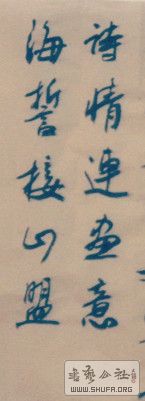 诗情连画意
海誓接山盟
書藝公社
WWW.SHUFA.ORG